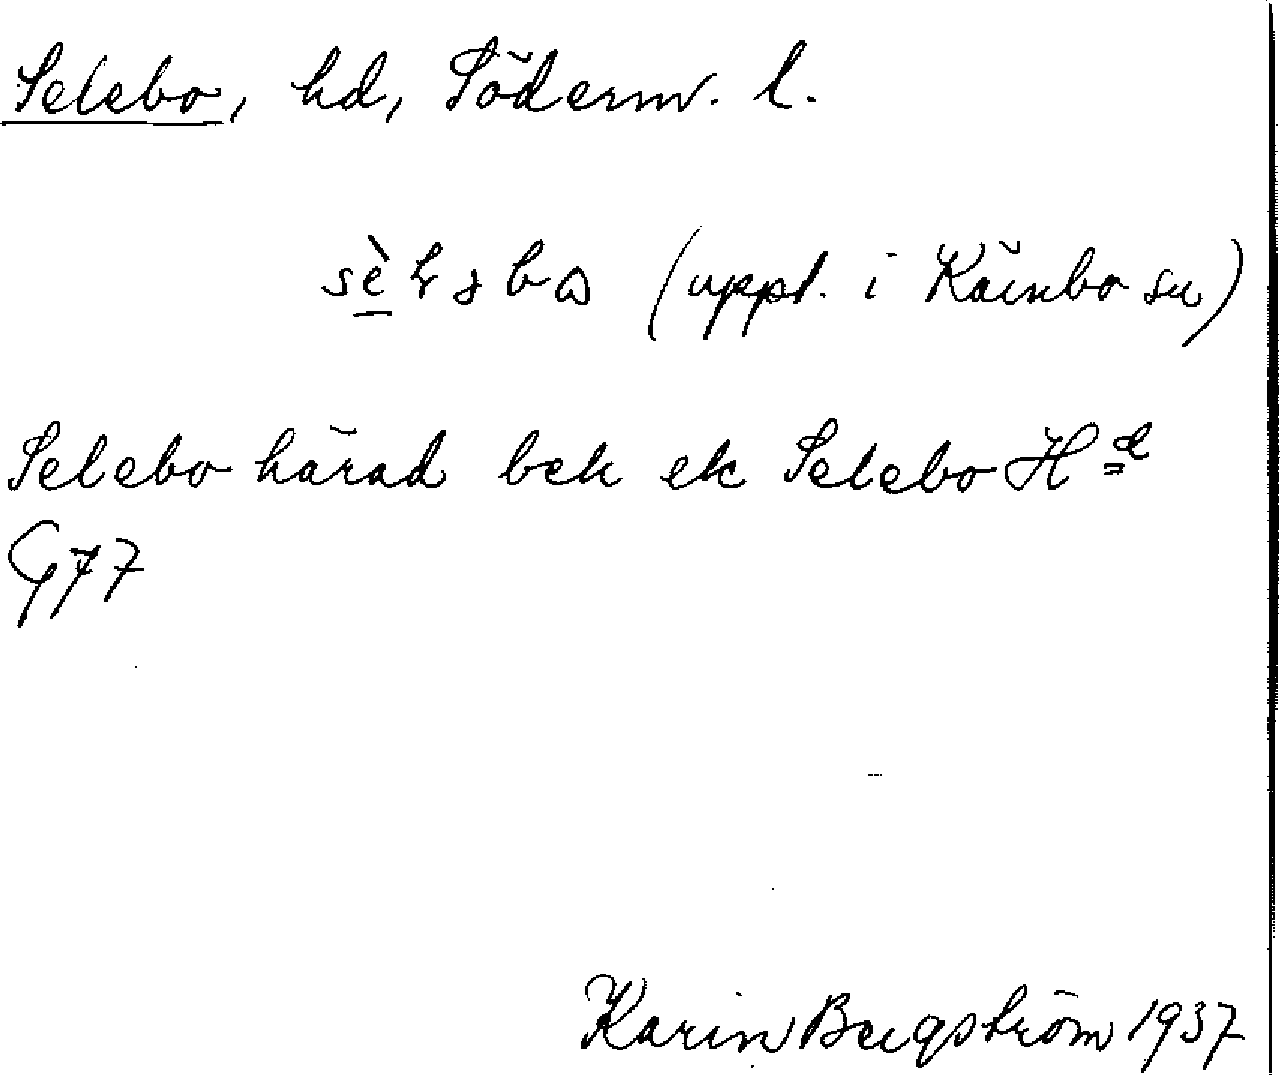 Selebo, hd, Söderm. l.
(uppt. i Kärnbo sn)
Selebo härad bek ek Selebo Hd
G 77
Karin Bergström 1937